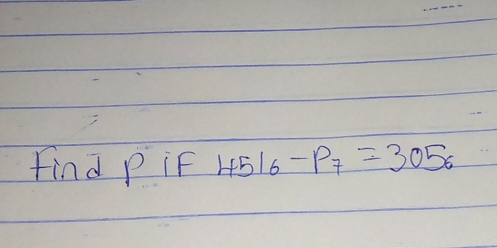 Find P if 451₆ - P₇ = 305₆